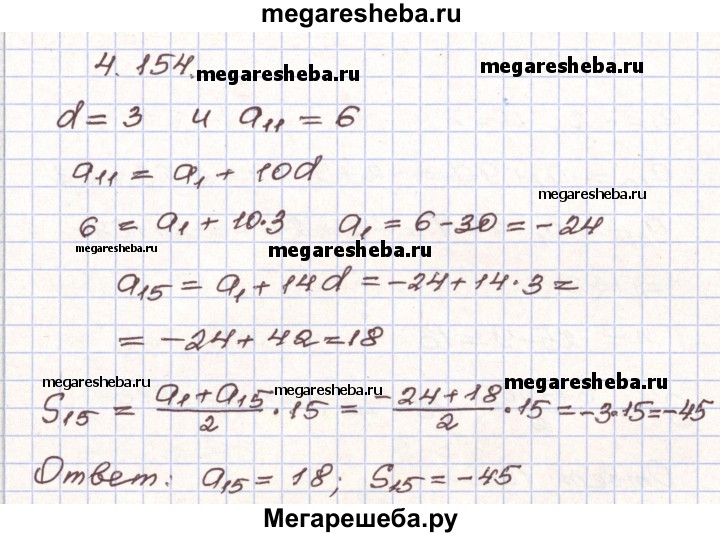 megaresheba.ru
4.154. megaresheba.ru megaresheba.ru
d = 3 и a₁₁ = 6
a₁₁ = a₁ + 10d
megaresheba.ru
6 = a₁ + 10·3 a₁ = 6-30 = -24
megaresheba.ru megaresheba.ru
a₁₅ = a₁ + 14d = -24 + 14·3 =
= -24 + 42 = 18
megaresheba.ru megaresheba.ru megaresheba.ru
S₁₅ = (a₁ + a₁₅)/2 · 15 = (-24 + 18)/2 · 15 = -3·15 = -45
Ответ: a₁₅ = 18; S₁₅ = -45
Мегарешеба.ру